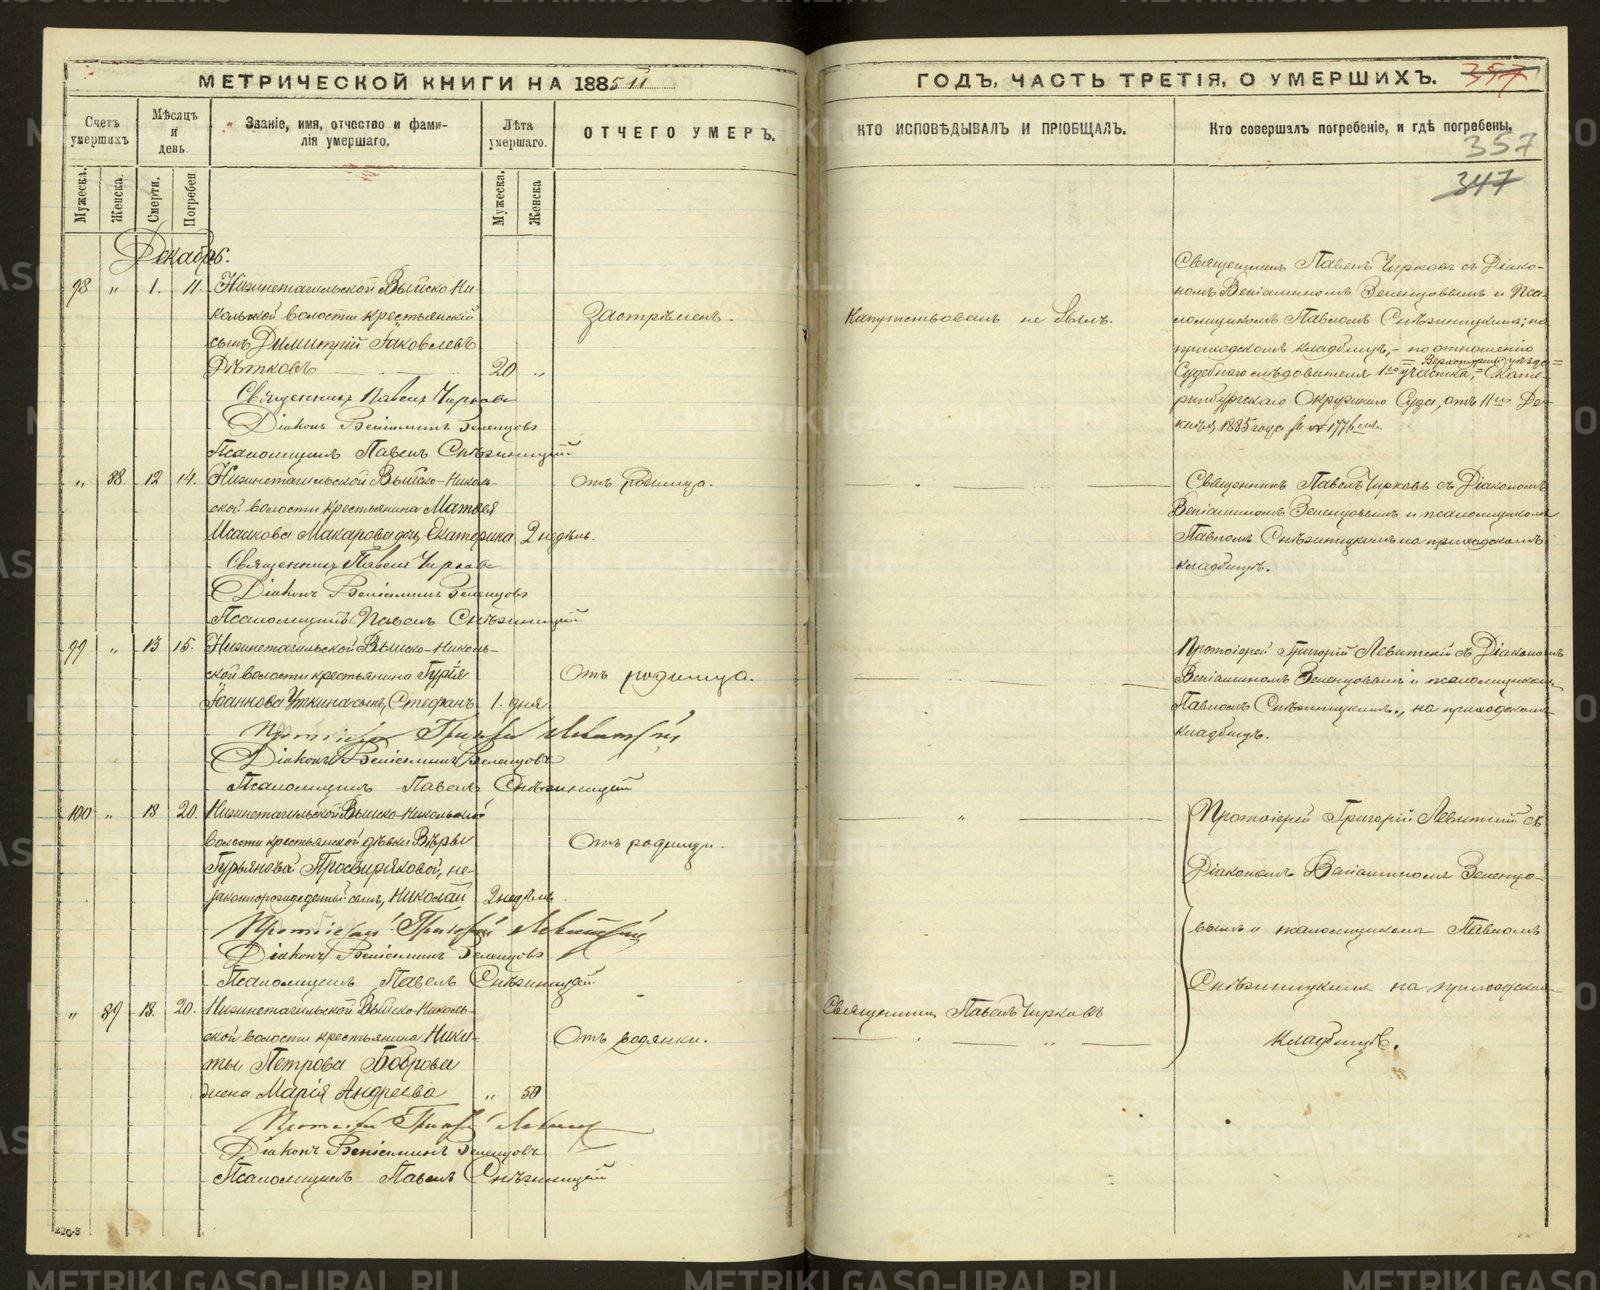 МЕТРИЧЕСКОЙ КНИГИ НА 1885й
ГОДЪ, ЧАСТЬ ТРЕТІЯ, О УМЕРШИХЪ.
357
Счетъ умершихъ
Мѣсяцъ и день
Званіе, имя, отчество и фами-
лія умершаго.
Лѣта умершаго.
ОТЧЕГО УМЕРЪ.
КТО ИСПОВѢДЫВАЛЪ И ПРІОБЩАЛЪ.
Кто совершалъ погребеніе, и гдѣ погребены.
357
347
Мужеска.
Женска.
Смерти.
Погребен
Мужеска.
Женска
Декабрь.
98 " 1. 11. Нижнетагильской Выйско Ни-
кольской волости крестьянскій
сынъ Димитрій Іаковлевъ
Дѣтковъ 20 "
Застрѣленъ.
Напутствованъ не былъ.
Священникъ Павелъ Чирковъ съ Діако-
номъ Веніаминомъ Зеленцовымъ и Пса-
ломщикомъ Павломъ Снѣжницкимъ; на
приходскомъ кладбищѣ, - по отношенію
Верхотурск. уѣзда
Судебнаго слѣдователя 1го участка, Екате-
ринбургскаго Окружнаго Суда, отъ 11го Де-
кабря 1885 года за № 1776мъ.
Священникъ Павелъ Чирковъ
Діаконъ Веніаминъ Зеленцовъ
Псаломщикъ Павелъ Снѣжницкій
" 88. 12 14. Нижнетагильской Выйско-Николь-
ской волости крестьянина Матвея
Исаакова Макарова дочь Екатерина 2 недѣль.
Отъ родимца.
Священникъ Павелъ Чирковъ съ Діакономъ
Веніаминомъ Зеленцовымъ и псаломщикомъ
Павломъ Снѣжницкимъ на приходскомъ
кладбищѣ.
Священникъ Павелъ Чирковъ
Діаконъ Веніаминъ Зеленцовъ
Псаломщикъ Павелъ Снѣжницкій
99 " 13 15. Нижнетагильской Выйско-Николь-
ской волости крестьянина Гурія
Іоаннова Уткина сынъ, Стефанъ 1. дня
Отъ родимца.
Протоіерей Григорій Левитскій съ Діакономъ
Веніаминомъ Зеленцовымъ и псаломщикомъ
Павломъ Снѣжницкимъ, на приходскомъ
кладбищѣ.
Протоіерей Григорій Левитскій
Діаконъ Веніаминъ Зеленцовъ
Псаломщикъ Павелъ Снѣжницкій
100 " 18 20. Нижнетагильской Выйско-Никольской
волости крестьянской дѣвки Вѣры
Гурьяновой Просвиряковой, не-
законнорожденный сынъ, Николай 2 недѣль.
Отъ родимца.
Протоіерей Григорій Левитскій съ
Діакономъ Веніаминомъ Зеленцо-
вымъ и псаломщикомъ Павломъ
Снѣжницкимъ на приходскомъ
кладбищѣ.
Протоіерей Григорій Левитскій
Діаконъ Веніаминъ Зеленцовъ
Псаломщикъ Павелъ Снѣжницкій
" 89 18. 20. Нижнетагильской Выйско-Николь-
ской волости крестьянина Ники-
ты Петрова Боброва
жена Марія Андреева " 50
Отъ водянки.
Священникъ Павелъ Чирковъ
Протоіерей Григорій Левитскій
Діаконъ Веніаминъ Зеленцовъ
Псаломщикъ Павелъ Снѣжницкій
220-8
METRIKI.GASO-URAL.RU